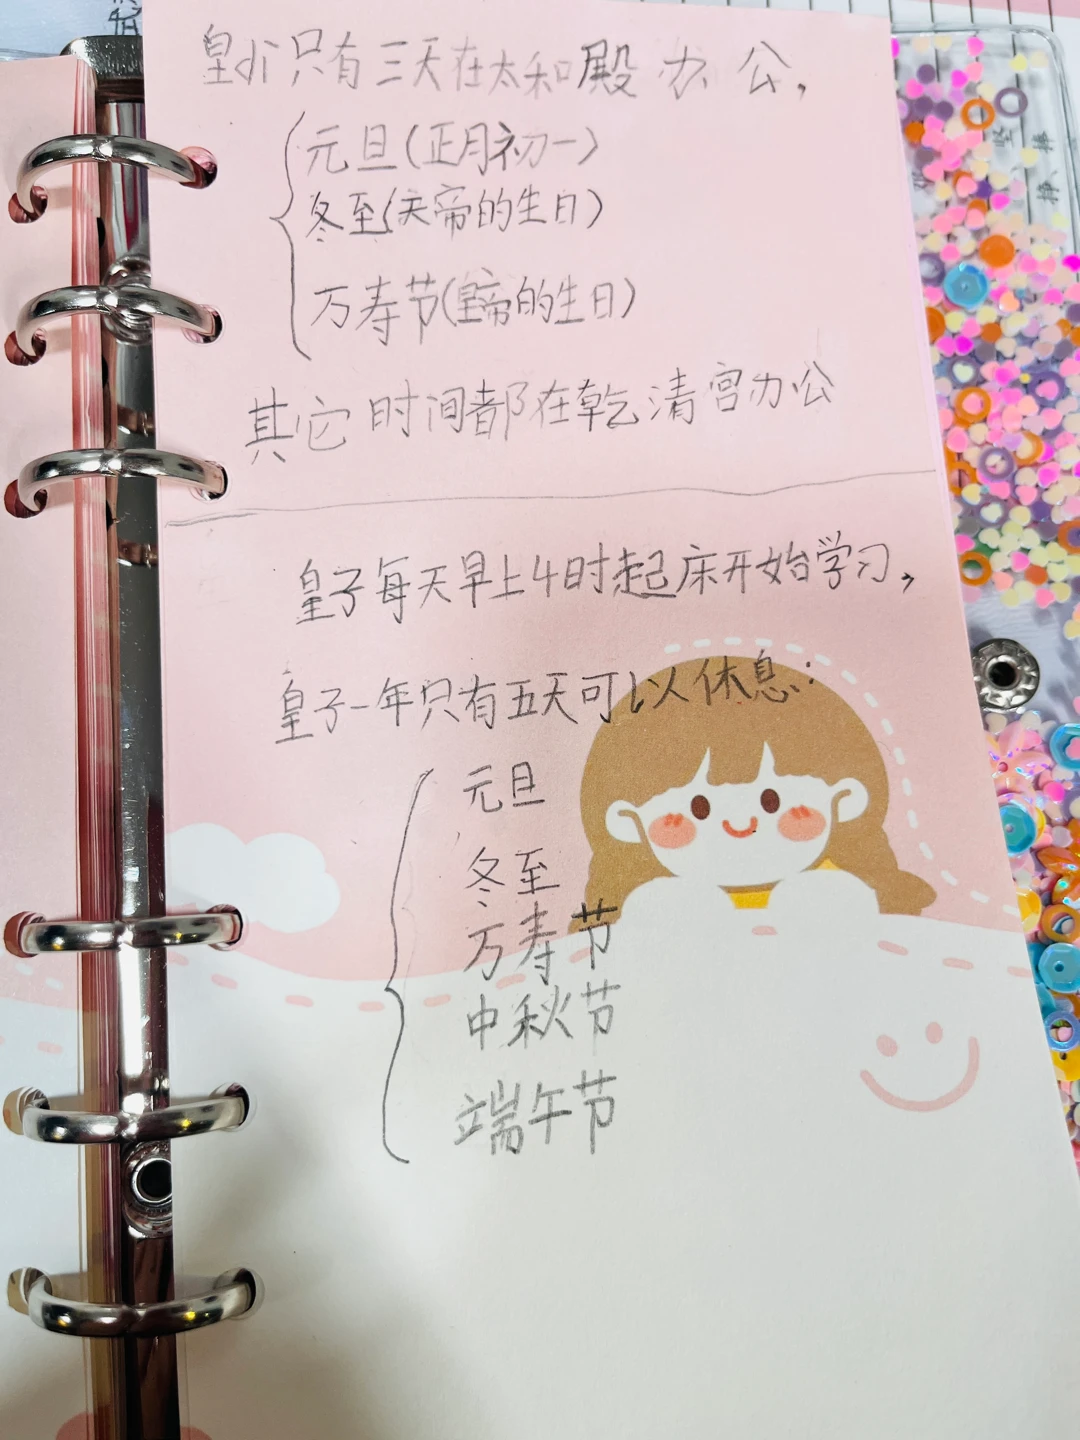 皇小只有三天在太和殿办公，
元旦(正月初一)
冬至(天帝的生日)
万寿节(皇帝的生日)
其它时间都在乾清宫办公
皇子每天早上4时起床开始学习，
皇子一年只有五天可以休息：
元旦
冬至
万寿节
中秋节
端午节